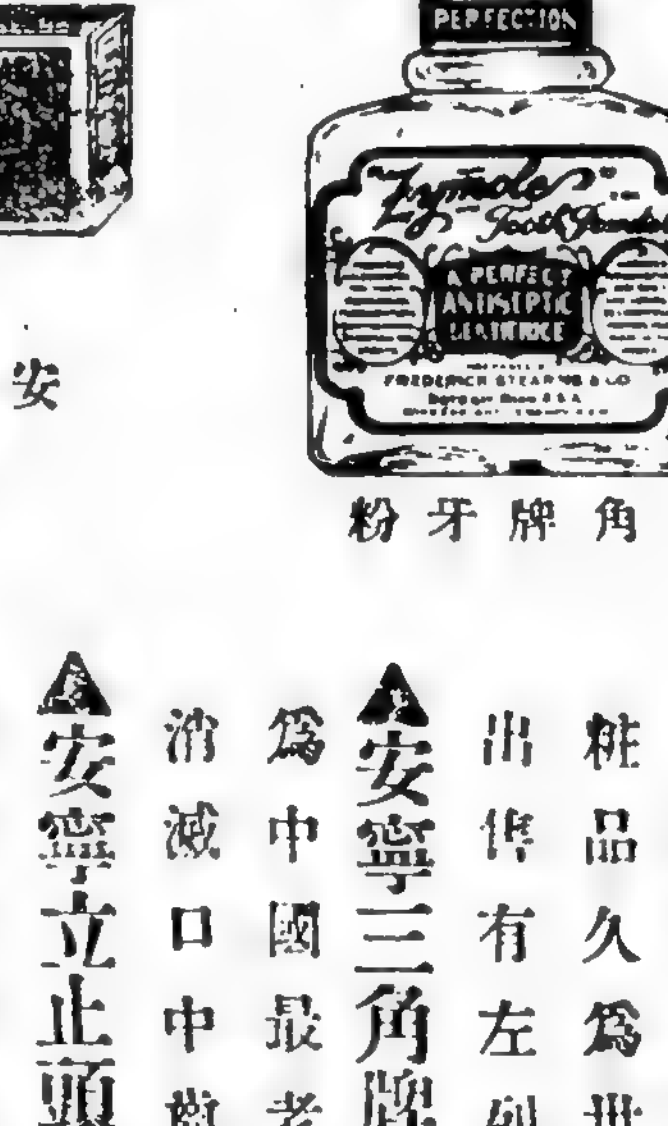 PERFECTION
Zymole
Tooth Powder
A PERFECT
ANTISEPTIC
DENTIFRICE
FREDERICK STEARNS & CO
安
粉牙牌角
粧品久為世
出售有左列
安寧三角牌
為中國最老
消滅口中
安寧立止頭